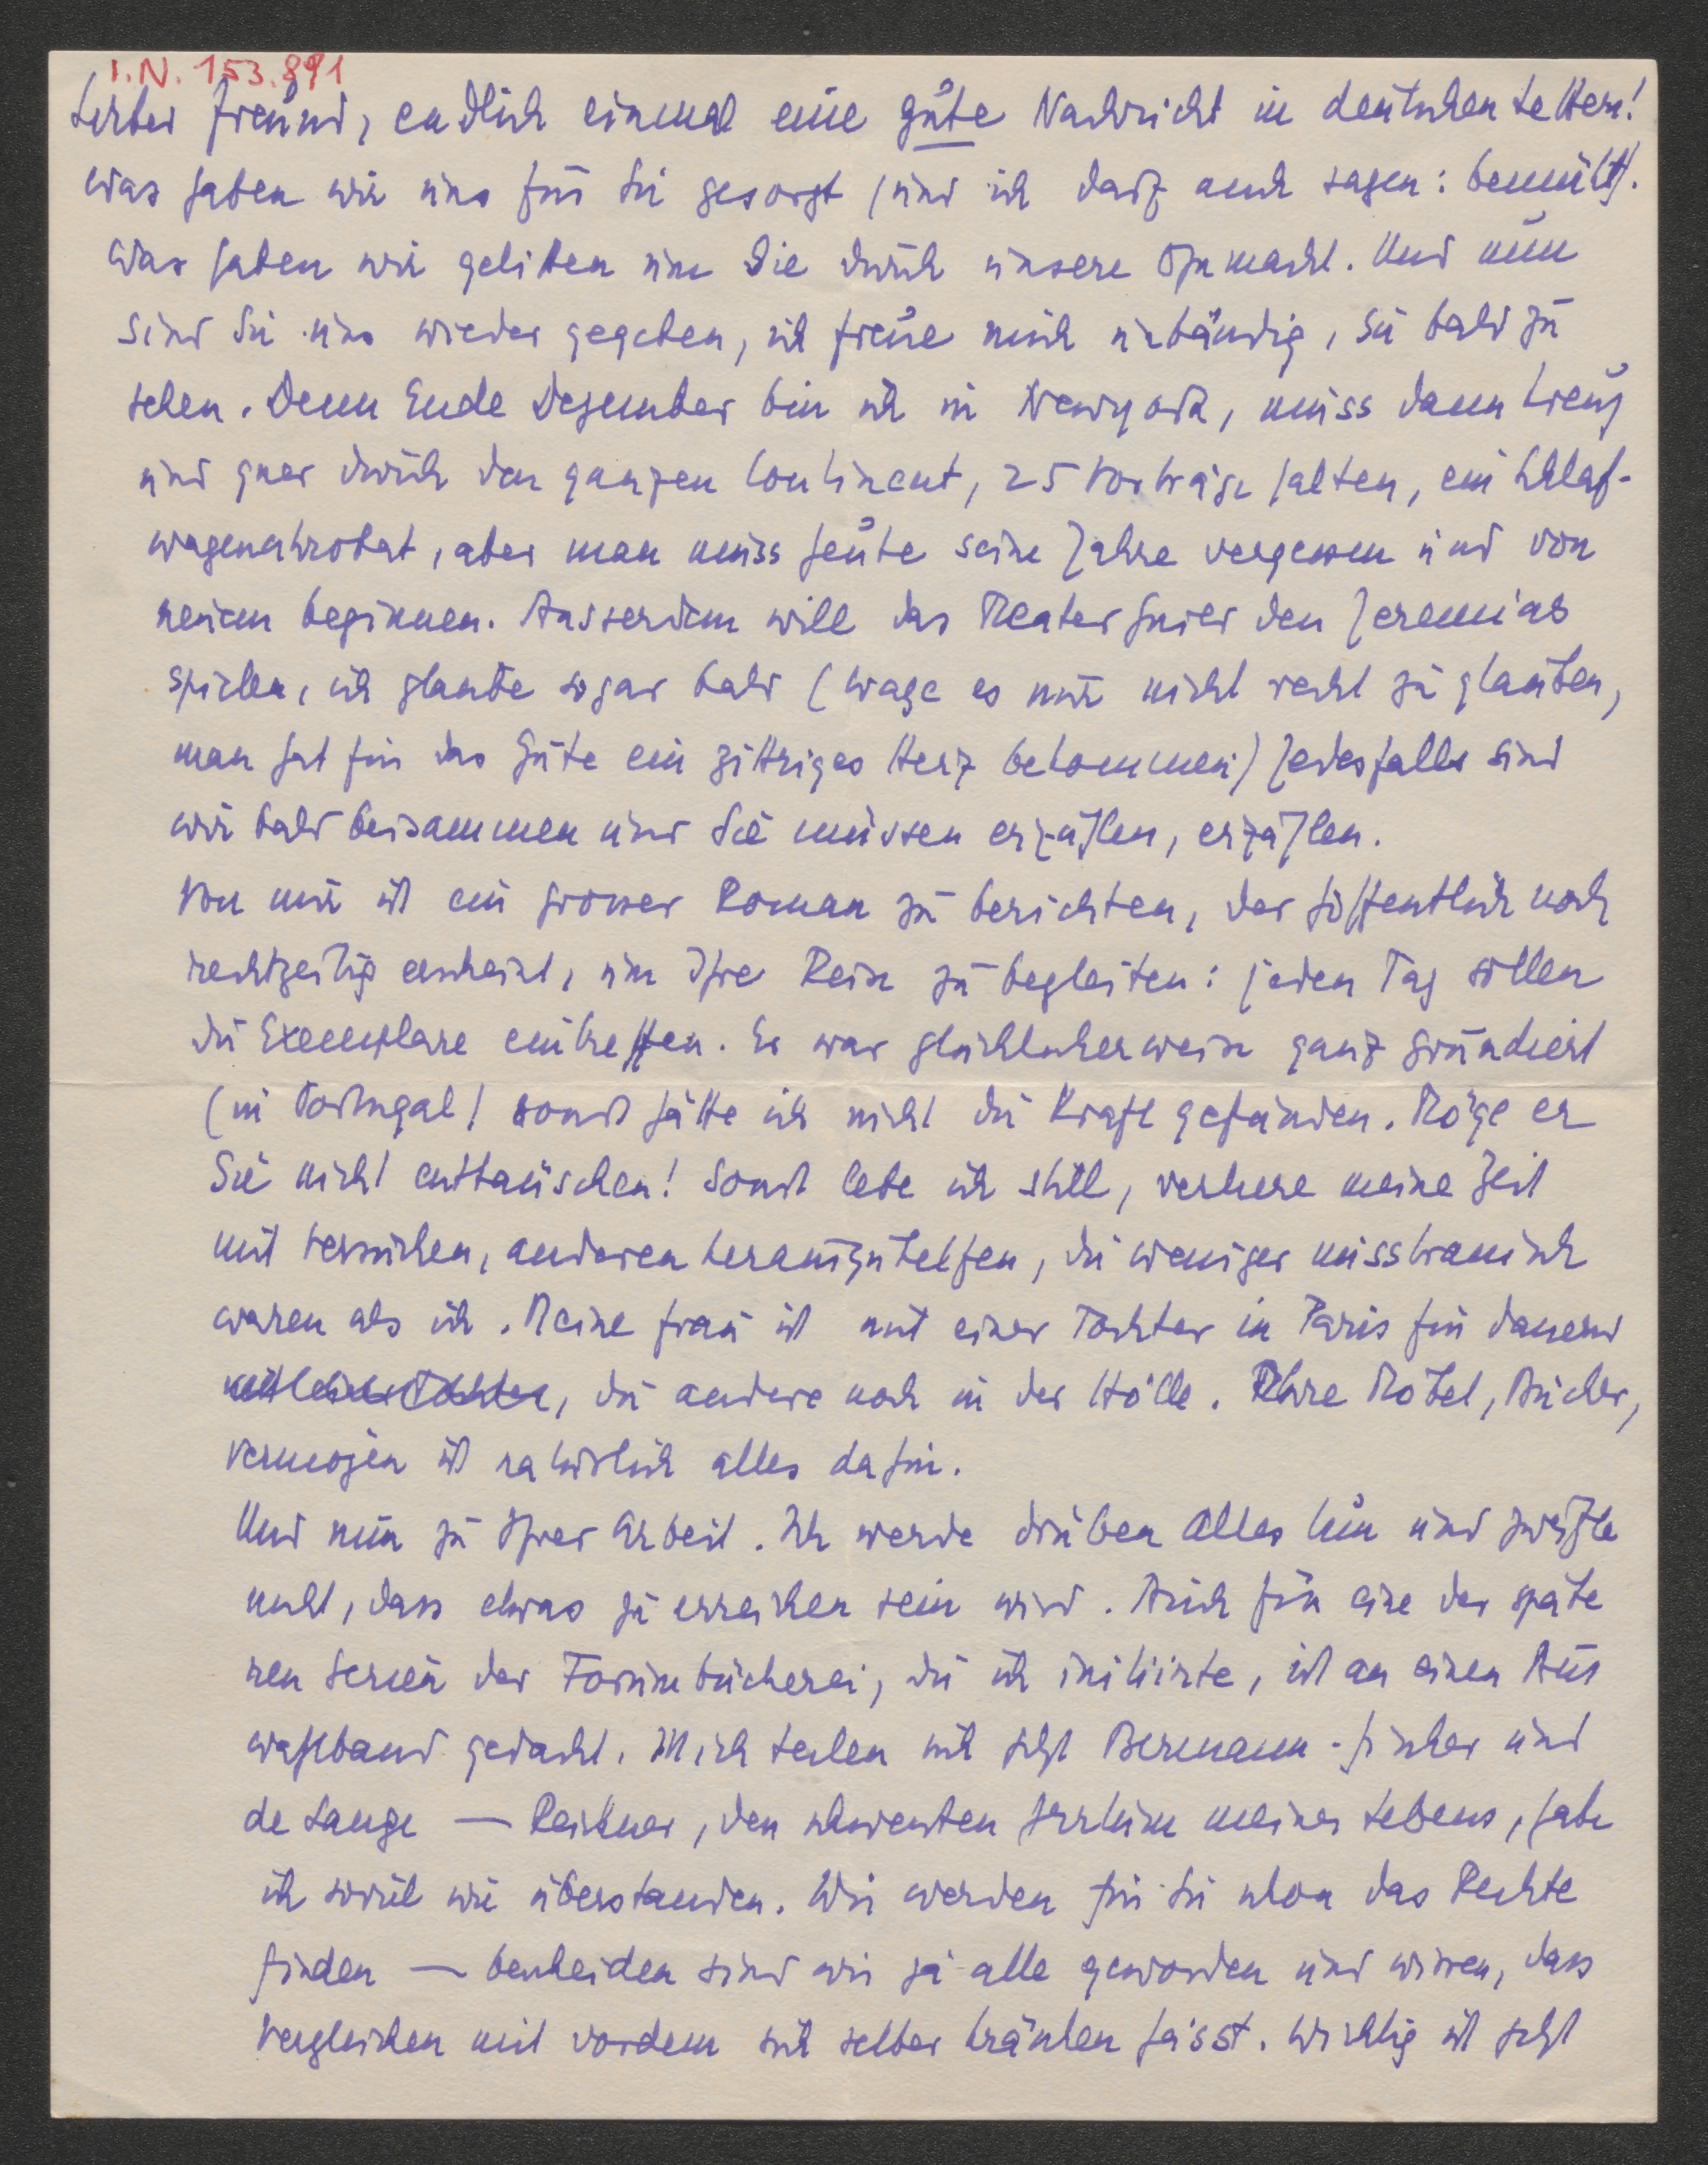 I.N. 153.891
Lieber Freund, endlich einmal eine gute Nachricht in deutschen Lettern!
Was haben wir uns für Sie gesorgt (und ich darf auch sagen: bemüht).
Was haben wir gelitten um Sie durch unsere Ohnmacht. Und nun
sind Sie uns wieder gegeben, ich freue mich unbändig, Sie bald zu
sehen. Denn Ende Dezember bin ich in Newyork, muss dann kreuz
und quer durch den ganzen Continent, 25 Vorträge halten, ein Schlaf-
wagenakrobat, aber man muss heute seine Jahre vergessen und von
neuem beginnen. Ausserdem will das Theater Guild den Jeremias
spielen, ich glaube sogar bald (wage es nur nicht recht zu glauben,
man hat für das Gute ein zittriges Herz bekommen) Jedesfalls sind
wir bald beisammen und Sie müssen erzählen, erzählen.
Von mir ist ein grosser Roman zu berichten, der hoffentlich noch
rechtzeitig erscheint, um Ihre Reise zu begleiten: jeden Tag sollen
die Exemplare eintreffen. Er war glücklicherweise ganz grundiert
(in Portugal) sonst hätte ich nicht die Kraft gefunden. Möge er
Sie nicht enttäuschen! Sonst lebe ich still, verliere meine Zeit
mit Versuchen, anderen herauszuhelfen, die weniger misstrauisch
waren als ich. Meine Frau ist mit einer Tochter in Paris für dauernd
mit einer Tochter, die andere noch in der Hölle. Ihre Möbel, Bücher,
Vermögen ist natürlich alles dahin.
Und nun zu Ihrer Arbeit. Ich werde drüben alles tun und zweifle
nicht, dass etwas zu erreichen sein wird. Auch für eine der späte
ren Serien der Forumbücherei, die ich initiirte, ist an einen Aus
wahlband gedacht. In mich teilen sich jetzt Bermann-Fischer und
de Lange — Reichner, den schwersten Irrtum meines Lebens, habe
ich soviel wie überstanden. Wir werden für Sie schon das Rechte
finden — bescheiden sind wir ja alle geworden und wissen, dass
Vergleichen mit vordem sich selber kränken heisst. Wichtig ist jetzt